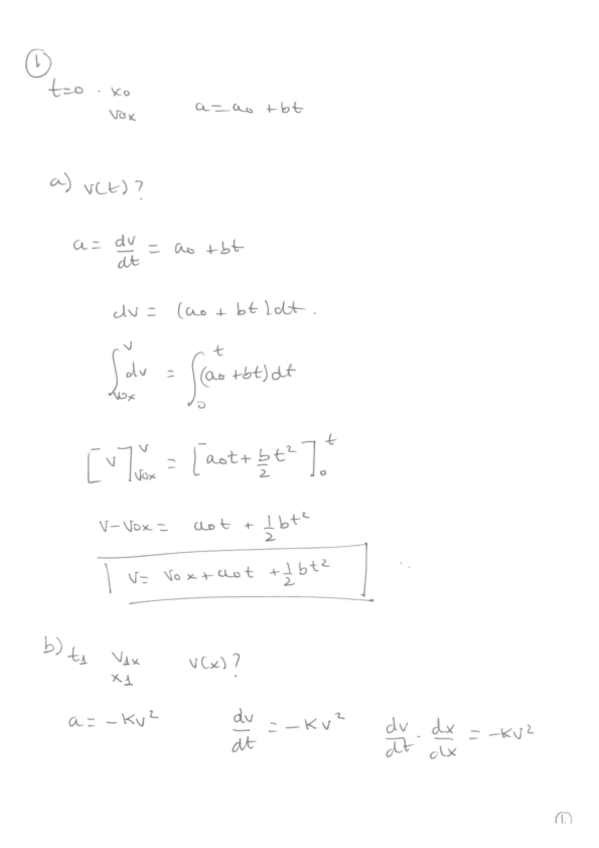 ①
t=0 . x₀
v₀ₓ a=a₀ +bt
a) v(t)?
a= dv/dt = a₀ +bt
dv = (a₀ + bt)dt.
∫_{v₀ₓ}^{v} dv = ∫_{0}^{t} (a₀ +bt)dt
[v]_{v₀ₓ}^{v} = [a₀t+ b/2 t²]_{0}^{t}
v-v₀ₓ = a₀t + 1/2 bt²
v= v₀ₓ+a₀t +1/2 bt²
b) t₁ v₁ₓ v(x)?
x₁
a= -Kv² dv/dt = -Kv² dv/dt · dx/dx = -Kv²
①